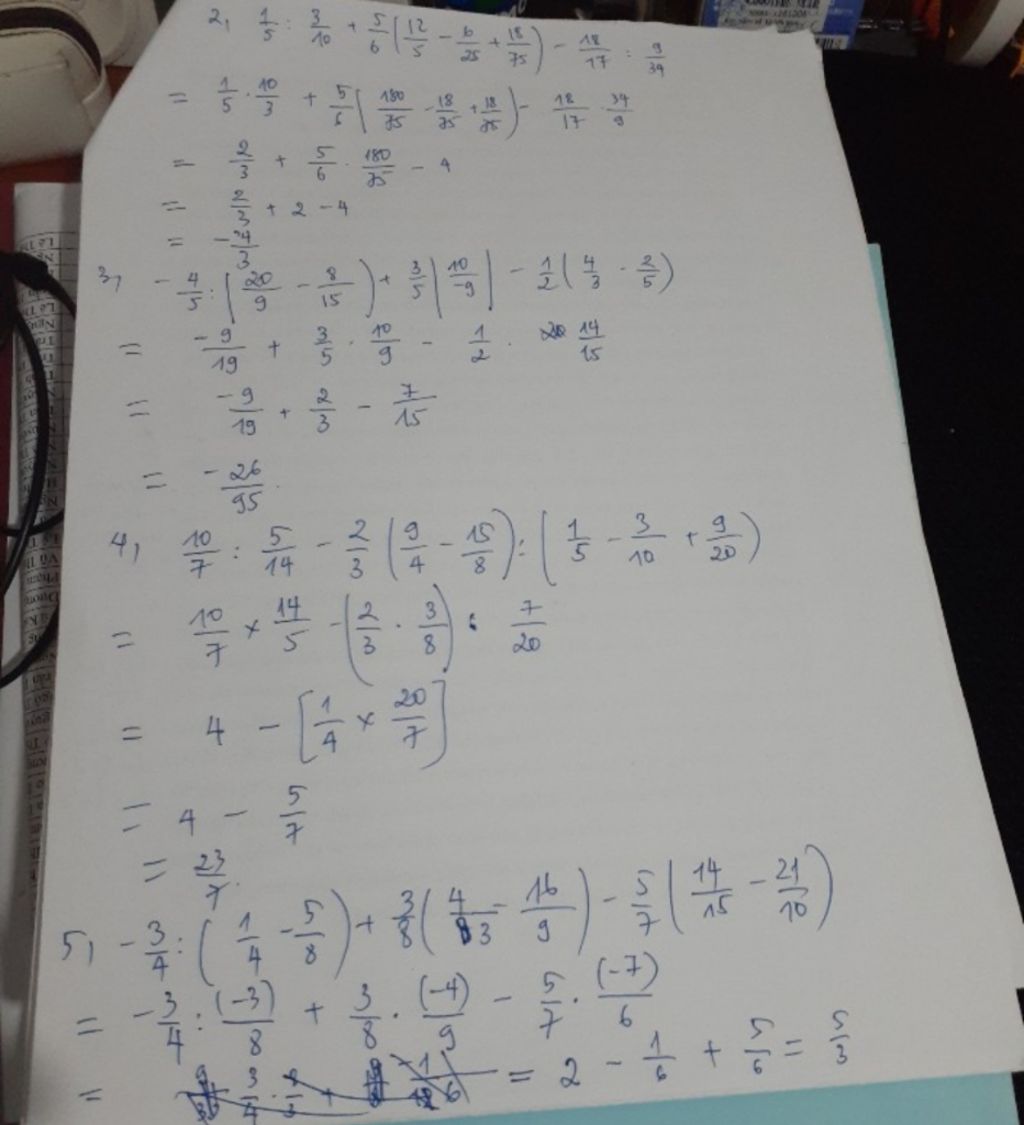 2, 1/5 : 3/10 + 5/6 (12/5 - 6/25 + 18/75) - 18/17 : 9/34
= 1/5 . 10/3 + 5/6 (180/75 - 18/75 + 18/75) - 18/17 . 34/9
= 2/3 + 5/6 . 180/75 - 4
= 2/3 + 2 - 4
= -4/3
3, -4/5 : (20/9 - 8/15) + 3/5 |10/-9| - 1/2 (4/3 - 2/5)
= -9/19 + 3/5 . 10/9 - 1/2 . 14/15
= -9/19 + 2/3 - 7/15
= -26/95.
4, 10/7 : 5/14 - 2/3 (9/4 - 15/8) : (1/5 - 3/10 + 9/20)
= 10/7 × 14/5 - (2/3 . 3/8) : 7/20
= 4 - [1/4 × 20/7]
= 4 - 5/7
= 23/7.
5, -3/4 : (1/4 - 5/8) + 3/8 (4/3 - 16/9) - 5/7 (14/15 - 21/10)
= -3/4 : (-3)/8 + 3/8 . (-4)/9 - 5/7 . (-7)/6
= = 2 - 1/6 + 5/6 = 5/3